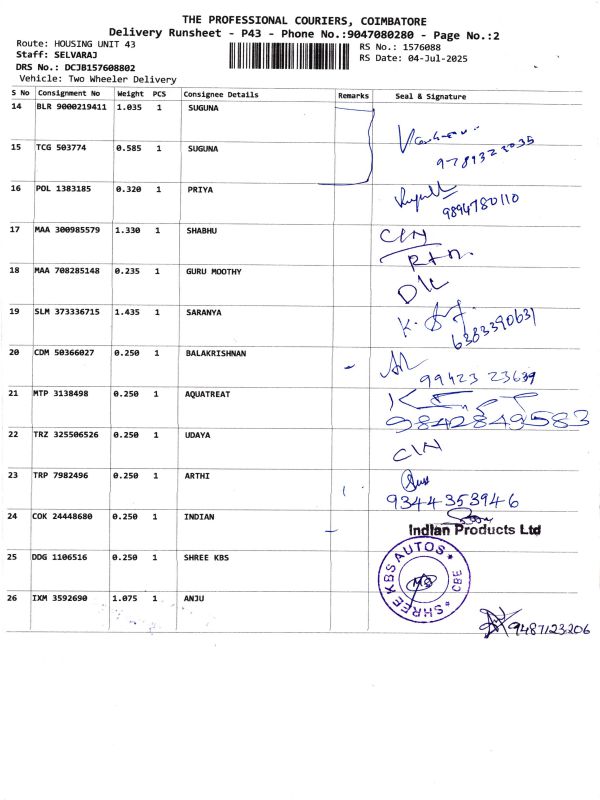 THE PROFESSIONAL COURIERS, COIMBATORE
Delivery Runsheet - P43 - Phone No.:9047080280 - Page No.:2
Route: HOUSING UNIT 43
RS No.: 1576088
Staff: SELVARAJ
RS Date: 04-Jul-2025
DRS No.: DCJB157608802
Vehicle: Two Wheeler Delivery
S No Consignment No Weight PCS Consignee Details Remarks Seal & Signature
14 BLR 9000219411 1.035 1 SUGUNA
15 TCG 503774 0.585 1 SUGUNA
16 POL 1383185 0.320 1 PRIYA
9894780110
17 MAA 300985579 1.330 1 SHABHU CIN
18 MAA 708285148 0.235 1 GURU MOOTHY
19 SLM 373336715 1.435 1 SARANYA
6383390631
20 CDM 50366027 0.250 1 BALAKRISHNAN
99423 23639
21 MTP 3138498 0.250 1 AQUATREAT
9842849583
22 TRZ 325506526 0.250 1 UDAYA CIN
23 TRP 7982496 0.250 1 ARTHI
9344353946
24 COK 24448680 0.250 1 INDIAN
Indian Products Ltd
25 DDG 1106516 0.250 1 SHREE KBS
SHREE KBS AUTOS CBE
26 IXM 3592690 1.075 1 ANJU
9487123206